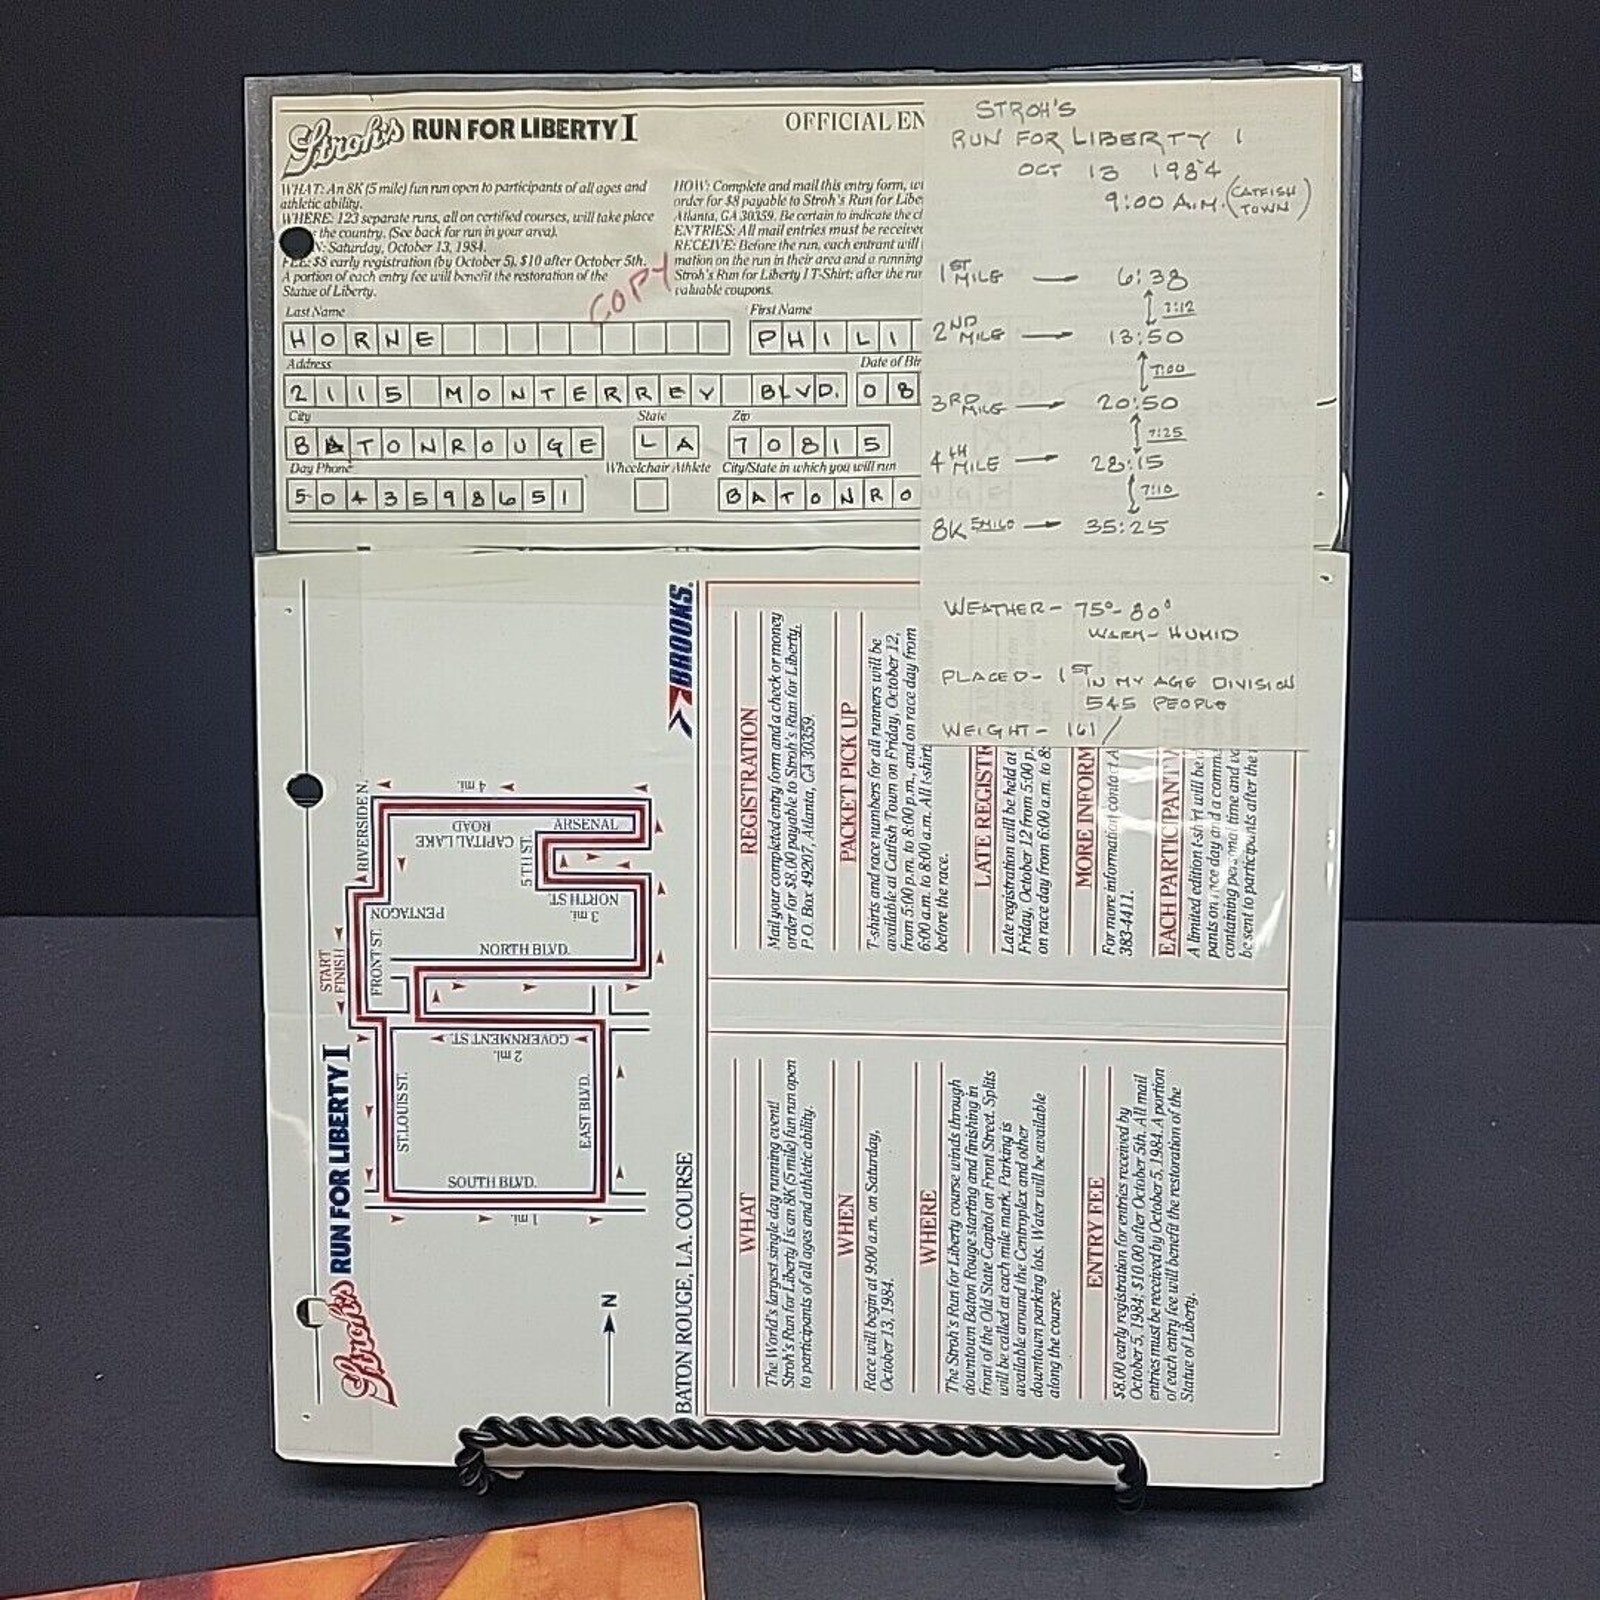 Stroh's RUN FOR LIBERTY I
OFFICIAL EN
WHAT: An 8K (5 mile) fun run open to participants of all ages and
athletic ability.
WHERE: 123 separate runs, all on certified courses, will take place
the country. (See back for run in your area).
N: Saturday, October 13, 1984.
FEE: $8 early registration (by October 5), $10 after October 5th.
A portion of each entry fee will benefit the restoration of the
Statue of Liberty.
HOW: Complete and mail this entry form, wi
order for $8 payable to Stroh's Run for Libe
Atlanta, GA 30359. Be certain to indicate the ci
ENTRIES: All mail entries must be receive
RECEIVE: Before the run, each entrant will
mation on the run in their area and a running
Stroh's Run for Liberty I T-Shirt; after the run
valuable coupons.
COPY
Last Name
First Name
HORNE
PHILI
Address
Date of Bir
2115 MONTERREY BLVD.
08
City
State
Zip
BATONROUGE
LA
70815
Day Phone
Wheelchair Athlete
City/State in which you will run
5043598651
BATONRO
STROH'S
RUN FOR LIBERTY 1
OCT 13 1984
9:00 A.M. (CATFISH TOWN)
1ST MILE → 6:38
7:12
2ND MILE → 13:50
7:00
3RD MILE → 20:50
7:25
4TH MILE → 28:15
7:10
8K 5MILE → 35:25
WEATHER - 75°-80°
WARM - HUMID
PLACED - 1ST IN MY AGE DIVISION
545 PEOPLE
WEIGHT - 161/
BROOKS.
Stroh's RUN FOR LIBERTY I
START
FINISH
RIVERSIDE N.
4 mi.
CAPITAL LAKE
ROAD
ARSENAL
5TH ST.
NORTH ST.
3 mi.
PENTAGON
FRONT ST.
NORTH BLVD.
GOVERNMENT ST.
2 mi.
ST. LOUIS ST.
EAST BLVD.
SOUTH BLVD.
1 mi.
N
BATON ROUGE, LA. COURSE
WHAT
The World's largest single day running event!
Stroh's Run for Liberty I is an 8K (5 mile) fun run open
to participants of all ages and athletic ability.
WHEN
Race will begin at 9:00 a.m. on Saturday,
October 13, 1984.
WHERE
The Stroh's Run for Liberty course winds through
downtown Baton Rouge starting and finishing in
front of the Old State Capitol on Front Street. Splits
will be called at each mile mark. Parking is
available around the Centroplex and other
downtown parking lots. Water will be available
along the course.
ENTRY FEE
$8.00 early registration for entries received by
October 5, 1984; $10.00 after October 5th. All mail
entries must be received by October 5, 1984. A portion
of each entry fee will benefit the restoration of the
Statue of Liberty.
REGISTRATION
Mail your completed entry form and a check or money
order for $8.00 payable to Stroh's Run for Liberty,
P.O. Box 49207, Atlanta, GA 30359.
PACKET PICK UP
T-shirts and race numbers for all runners will be
available at Catfish Town on Friday, October 12,
from 5:00 p.m. to 8:00 p.m., and on race day from
6:00 a.m. to 8:00 a.m. All t-shirt
before the race.
LATE REGISTR
Late registration will be held at
Friday, October 12 from 5:00 p.
on race day from 6:00 a.m. to 8:
MORE INFORM
For more information contact A
383-4411.
EACH PARTICIPANT
A limited edition t-shirt will be
pants on race day and a comm
containing personal time and va
be sent to participants after the